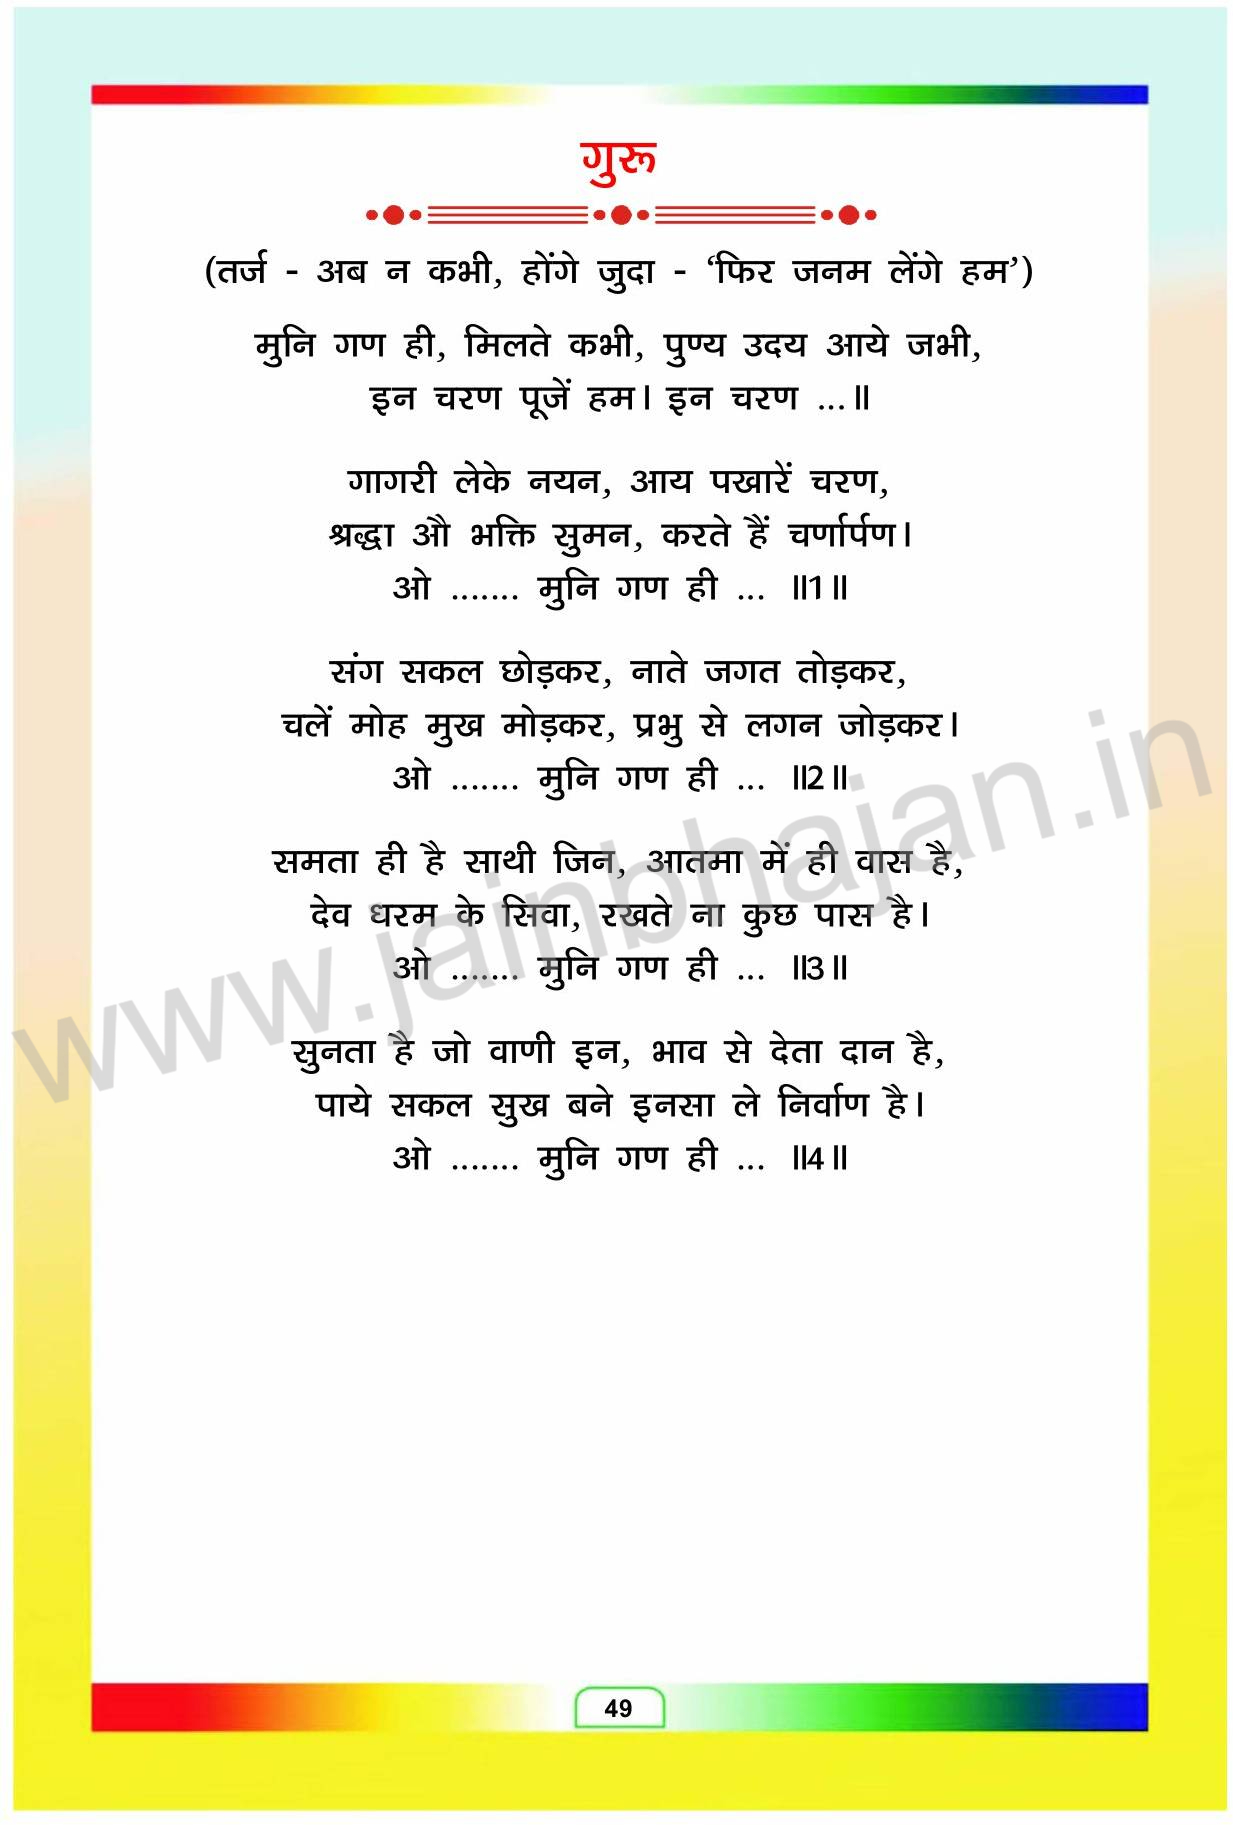 गुरू
(तर्ज - अब न कभी, होंगे जुदा - ‘फिर जनम लेंगे हम’)
मुनि गण ही, मिलते कभी, पुण्य उदय आये जभी,
इन चरण पूजें हम। इन चरण ...॥
गागरी लेके नयन, आय पखारें चरण,
श्रद्धा औ भक्ति सुमन, करते हैं चर्णार्पण।
ओ ....... मुनि गण ही ... ॥1॥
संग सकल छोड़कर, नाते जगत तोड़कर,
चलें मोह मुख मोड़कर, प्रभु से लगन जोड़कर।
ओ ....... मुनि गण ही ... ॥2॥
समता ही है साथी जिन, आतमा में ही वास है,
देव धरम के सिवा, रखते ना कुछ पास है।
ओ ....... मुनि गण ही ... ॥3॥
सुनता है जो वाणी इन, भाव से देता दान है,
पाये सकल सुख बने इनसा ले निर्वाण है।
ओ ....... मुनि गण ही ... ॥4॥
www.jainbhajan.in
49